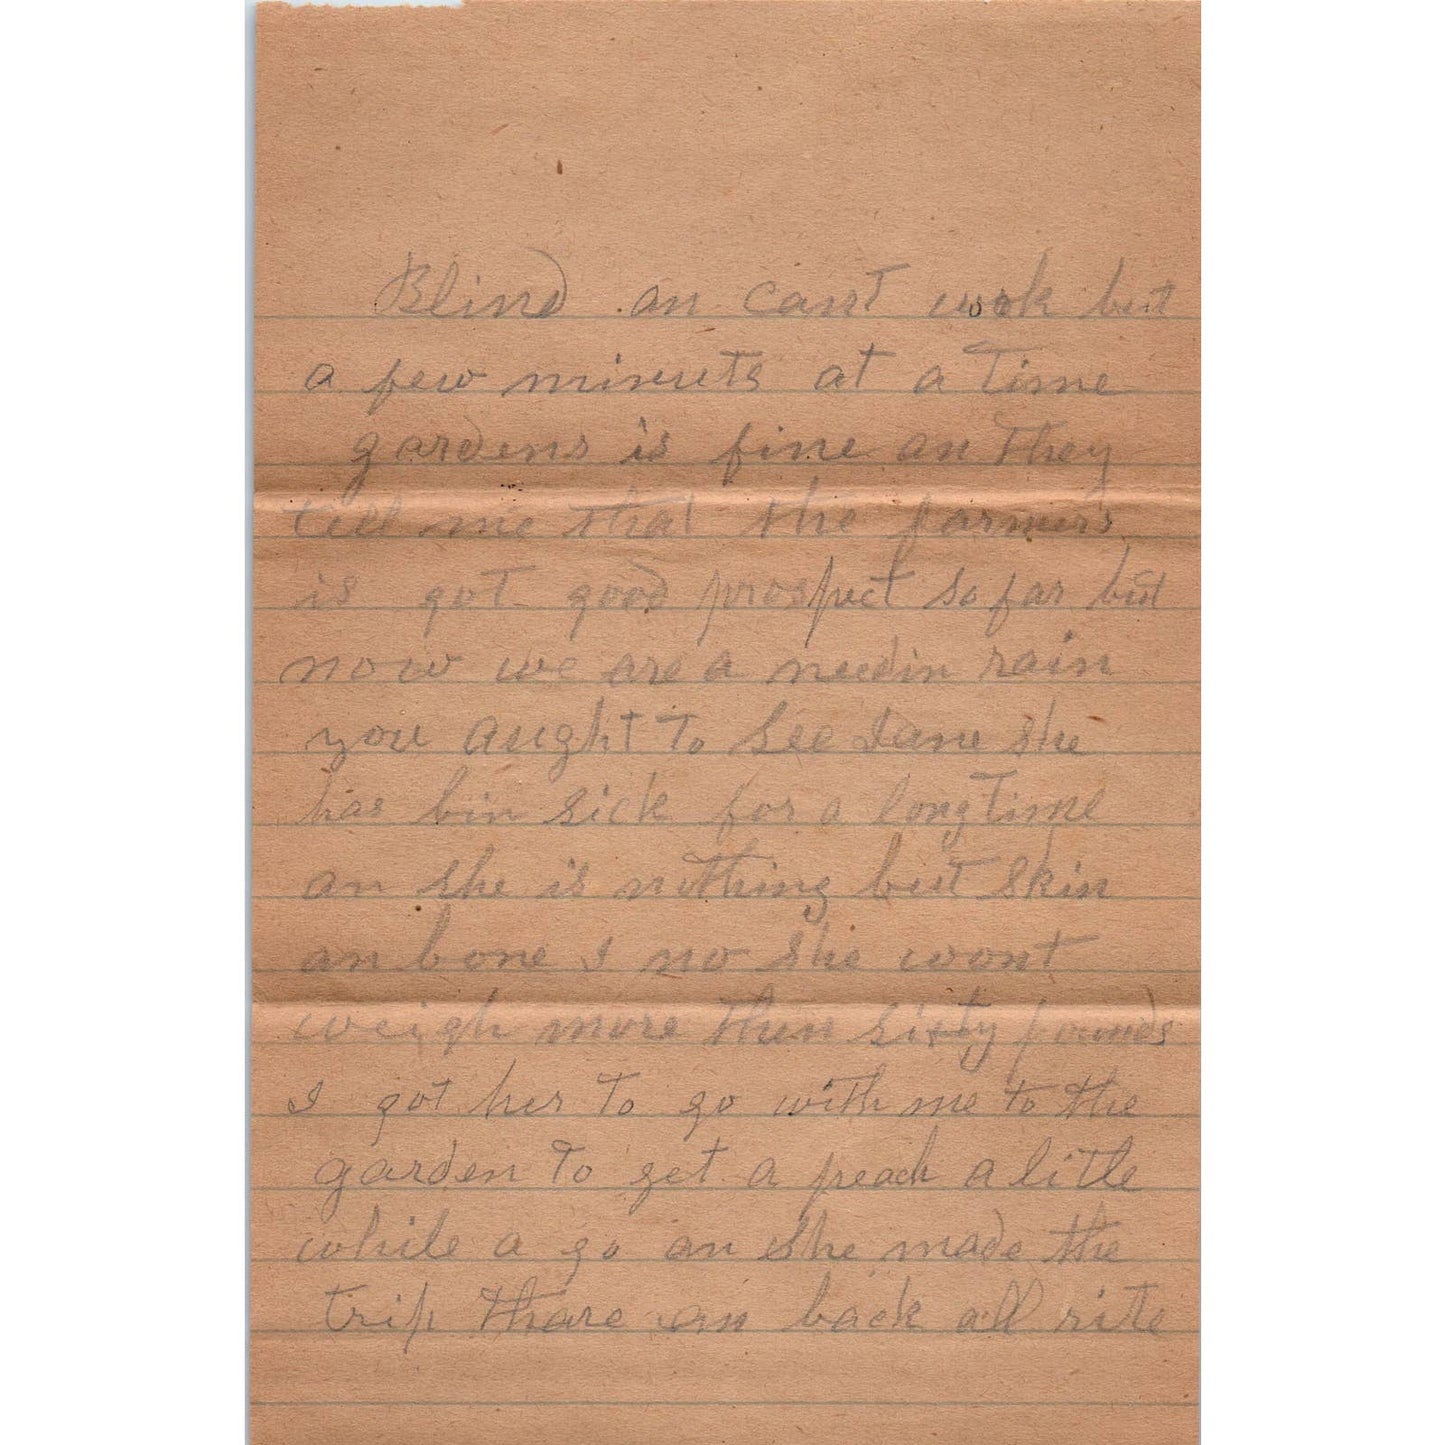 Blind an cant work but
a few minuts at a time
gardens is fine an they
tell me that the farmers
is got good prospect so far but
now we are a needin rain
you aught to see Jane she
has bin sick for a long time
an she is nothing but skin
an bone I no she wont
weigh more then sixty pounds
I got her to go with me to the
garden to get a peach a litle
while a go an she made the
trip thare an back all rite